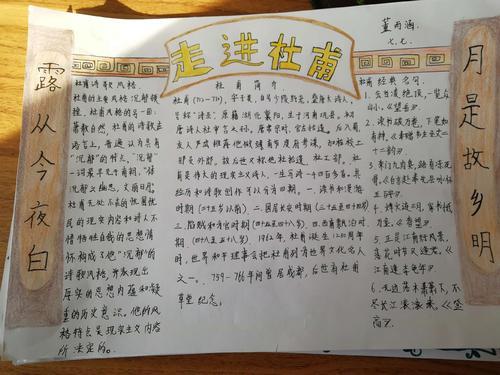 走进杜甫
董雨涵
七.七.
露从今夜白
月是故乡明
杜甫诗歌风格
杜甫的主要风格"沉郁顿
挫,杜甫风格的另一面:
萧散自然,杜甫的诗歌在
语言上,普遍认为具有
"沉郁"的特点,"沉郁"
一词最早见于南朝,"体
沉郁之幽思,文丽日月,
杜甫无处不在的忧国忧
民的现实内容和诗人不
惜牺牲自我的思想情
怀构成了他"沉郁"的
诗歌风格,所表现出
厚实的思想内蕴和凝
重的历史意识。他的风
格特点是现实主义内容
所决定的。
杜甫简介
杜甫(712—770),字子美,自号少陵野老,盛唐大诗人,
号称"诗圣"原籍湖北襄阳,生于河南巩县,初
唐诗人杜审言之孙。唐肃宗时,官左拾遗。后入蜀,
友人严武推荐他做剑南节度府参谋,加检校工
部员外郎。故后世又称他杜拾遗、杜工部。杜
甫是伟大的现实主义诗人,一生写诗一千四百多首。其
经历和诗歌创作可以分为四期。一、读书和漫游
时期(三十五岁以前)二、困居长安时期(三十五至四十四岁)
三、陷贼和为官时期(四十五至四十八岁)四、西南飘泊时
期(四十八至五十八岁)1962年,杜甫诞生1250周年
时,世界和平理事会把杜甫列为世界文化名人
之一。759—766年间曾居成都,后世有杜甫
草堂纪念。
杜甫经典名句
1.会当凌绝顶,一览众
山小。《望岳》
2.读书破万卷,下笔如
有神。《奉赠韦左丞丈二
十二韵》
3.朱门酒肉臭,路有冻死
骨。《自京赴奉先县咏怀
五百字》
4.烽火连三月,家书抵
万金。《春望》
5.正是江南好风景,
落花时节又逢君。《
江南逢李龟年》
6.无边落木萧萧下,不
尽长江滚滚来。《登
高》